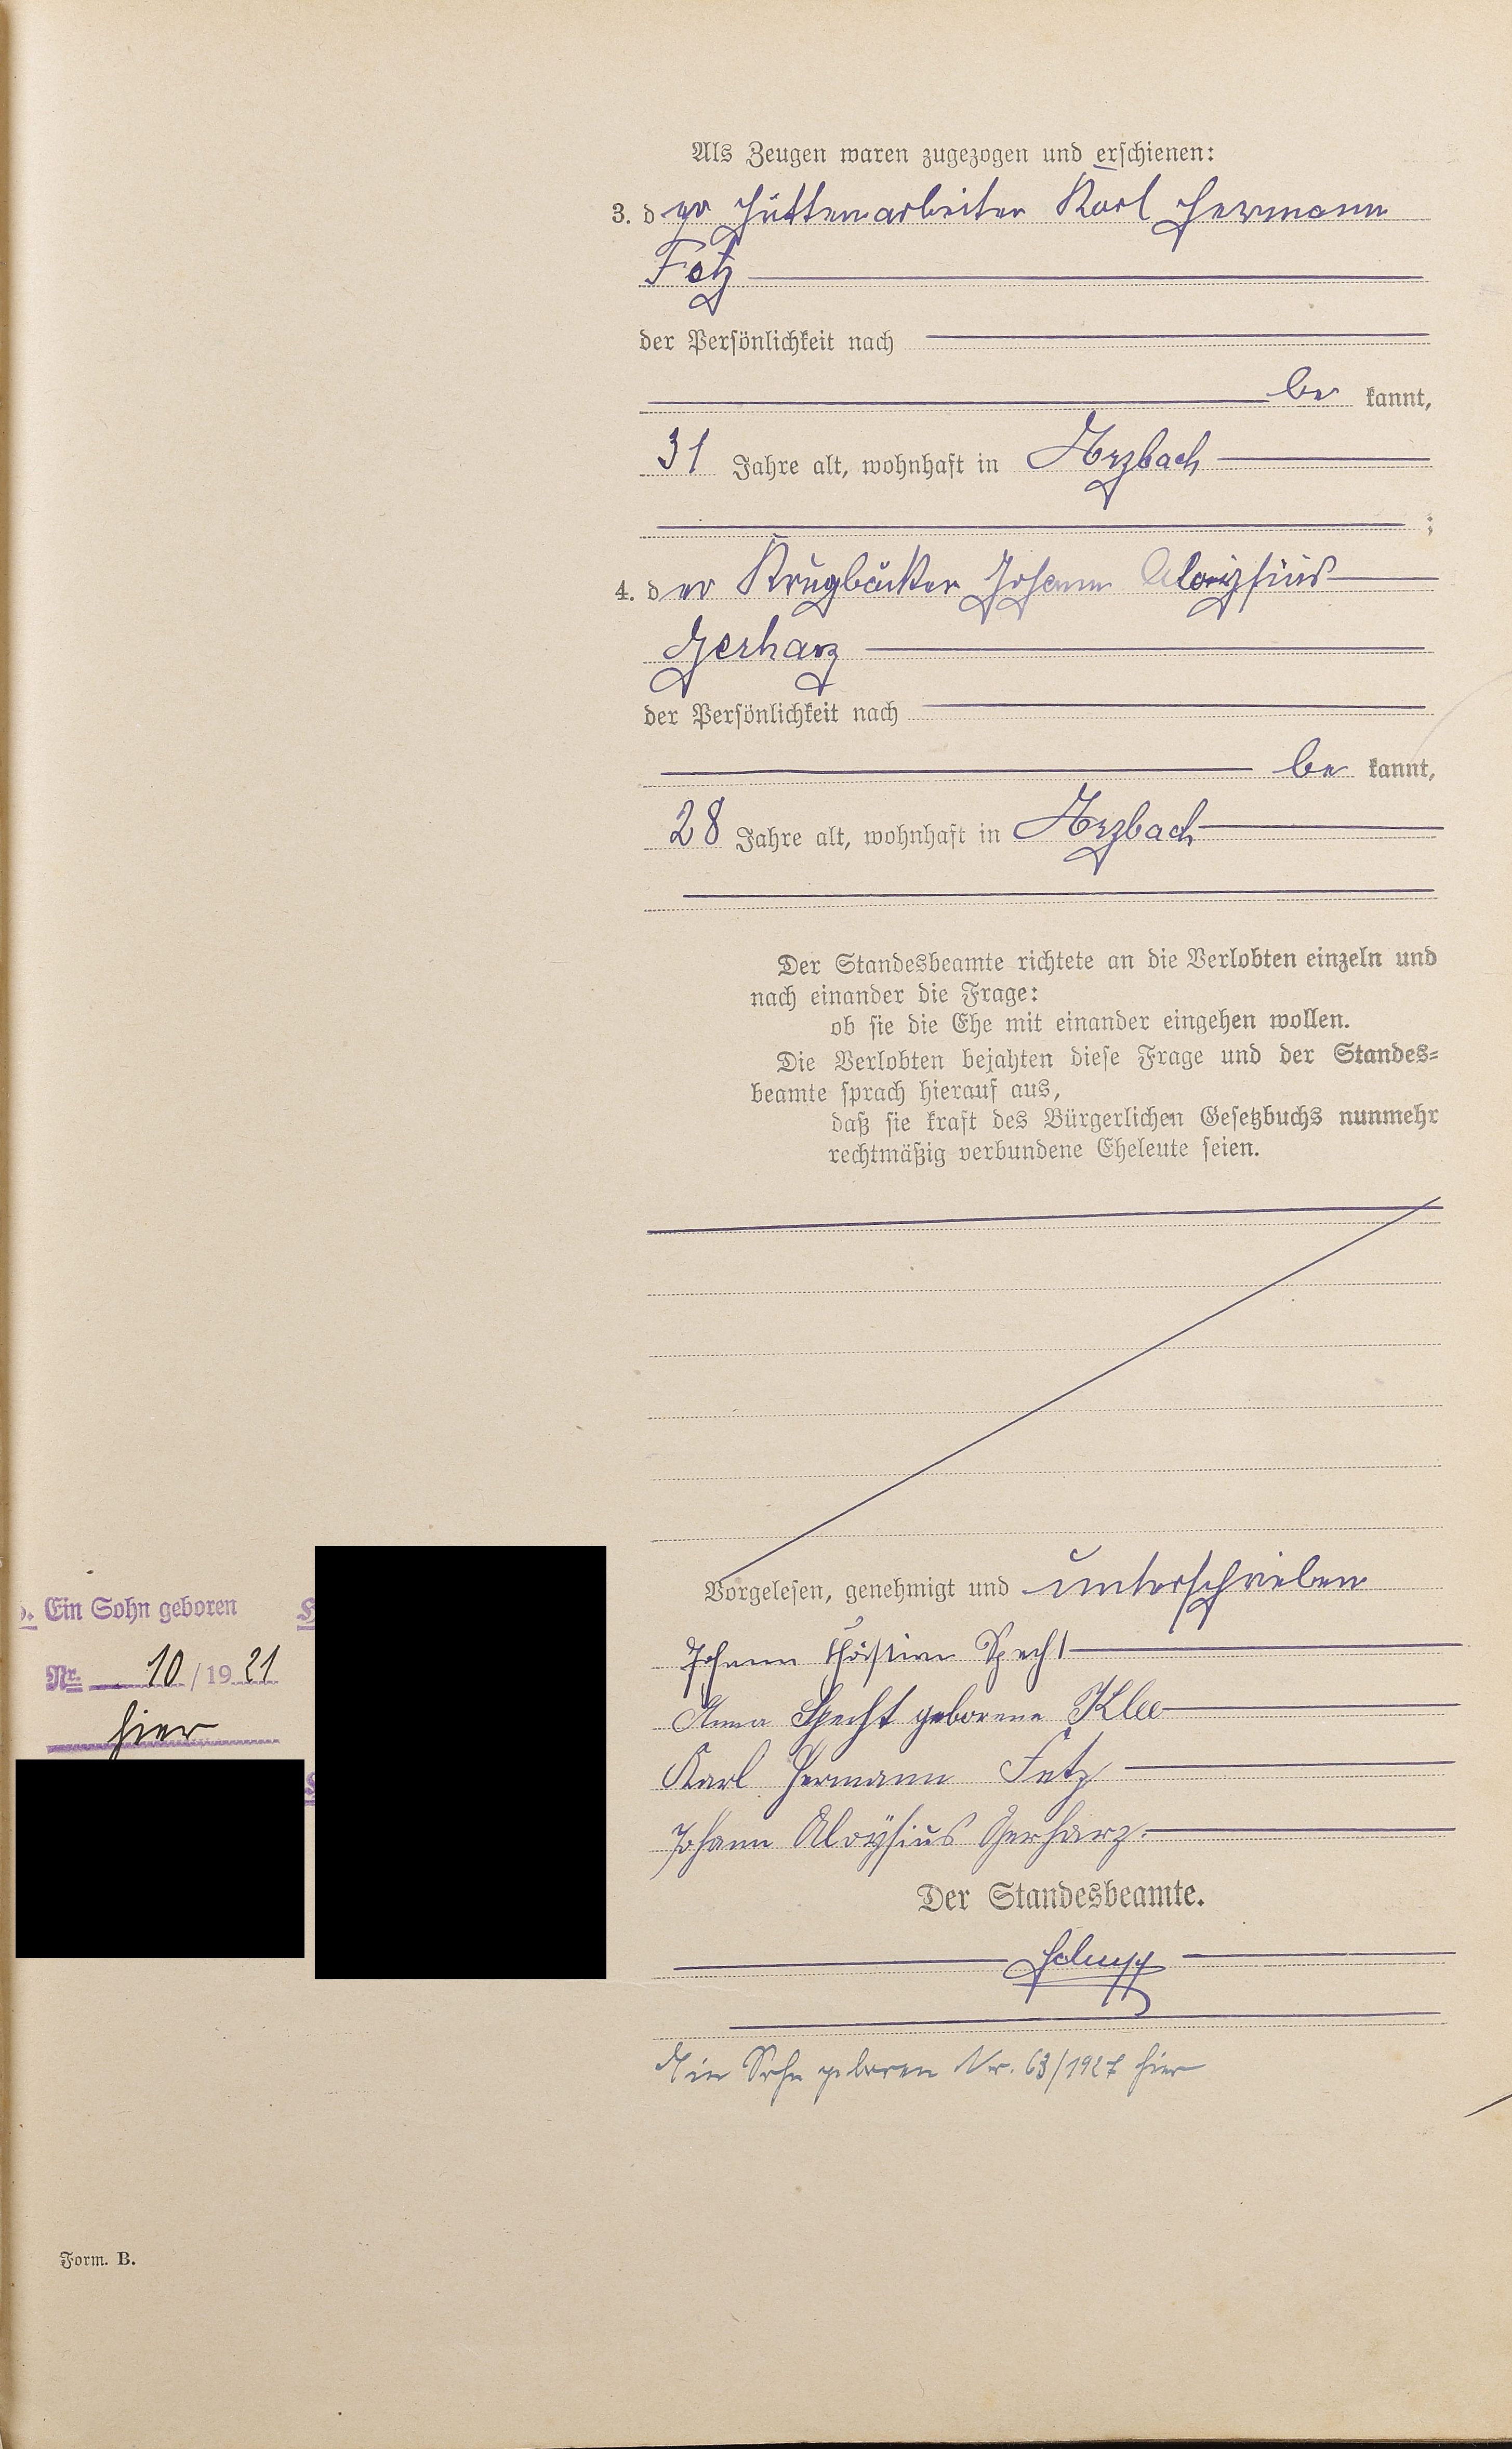 Als Zeugen waren zugezogen und erschienen:
3. der Hüttenarbeiter Karl Hermann
Fetz
der Persönlichkeit nach
be kannt,
31 Jahre alt, wohnhaft in Arzbach
;
4. der Krugbäcker Johann Aloysius
Gerharz
der Persönlichkeit nach
be kannt,
28 Jahre alt, wohnhaft in Arzbach
Der Standesbeamte richtete an die Verlobten einzeln und
nach einander die Frage:
ob sie die Ehe mit einander eingehen wollen.
Die Verlobten bejahten diese Frage und der Standes-
beamte sprach hierauf aus,
daß sie kraft des Bürgerlichen Gesetzbuchs nunmehr
rechtmäßig verbundene Eheleute seien.
Vorgelesen, genehmigt und unterschrieben
Johann Christian Specht
Anna Specht geborene Klee
Karl Hermann Fetz
Johann Aloÿsius Gerharz.
Der Standesbeamte.
Ein Sohn geboren Nr. 63/1927 hier
Ein Sohn geboren
Nr. 10/1921
hier
Form. B.